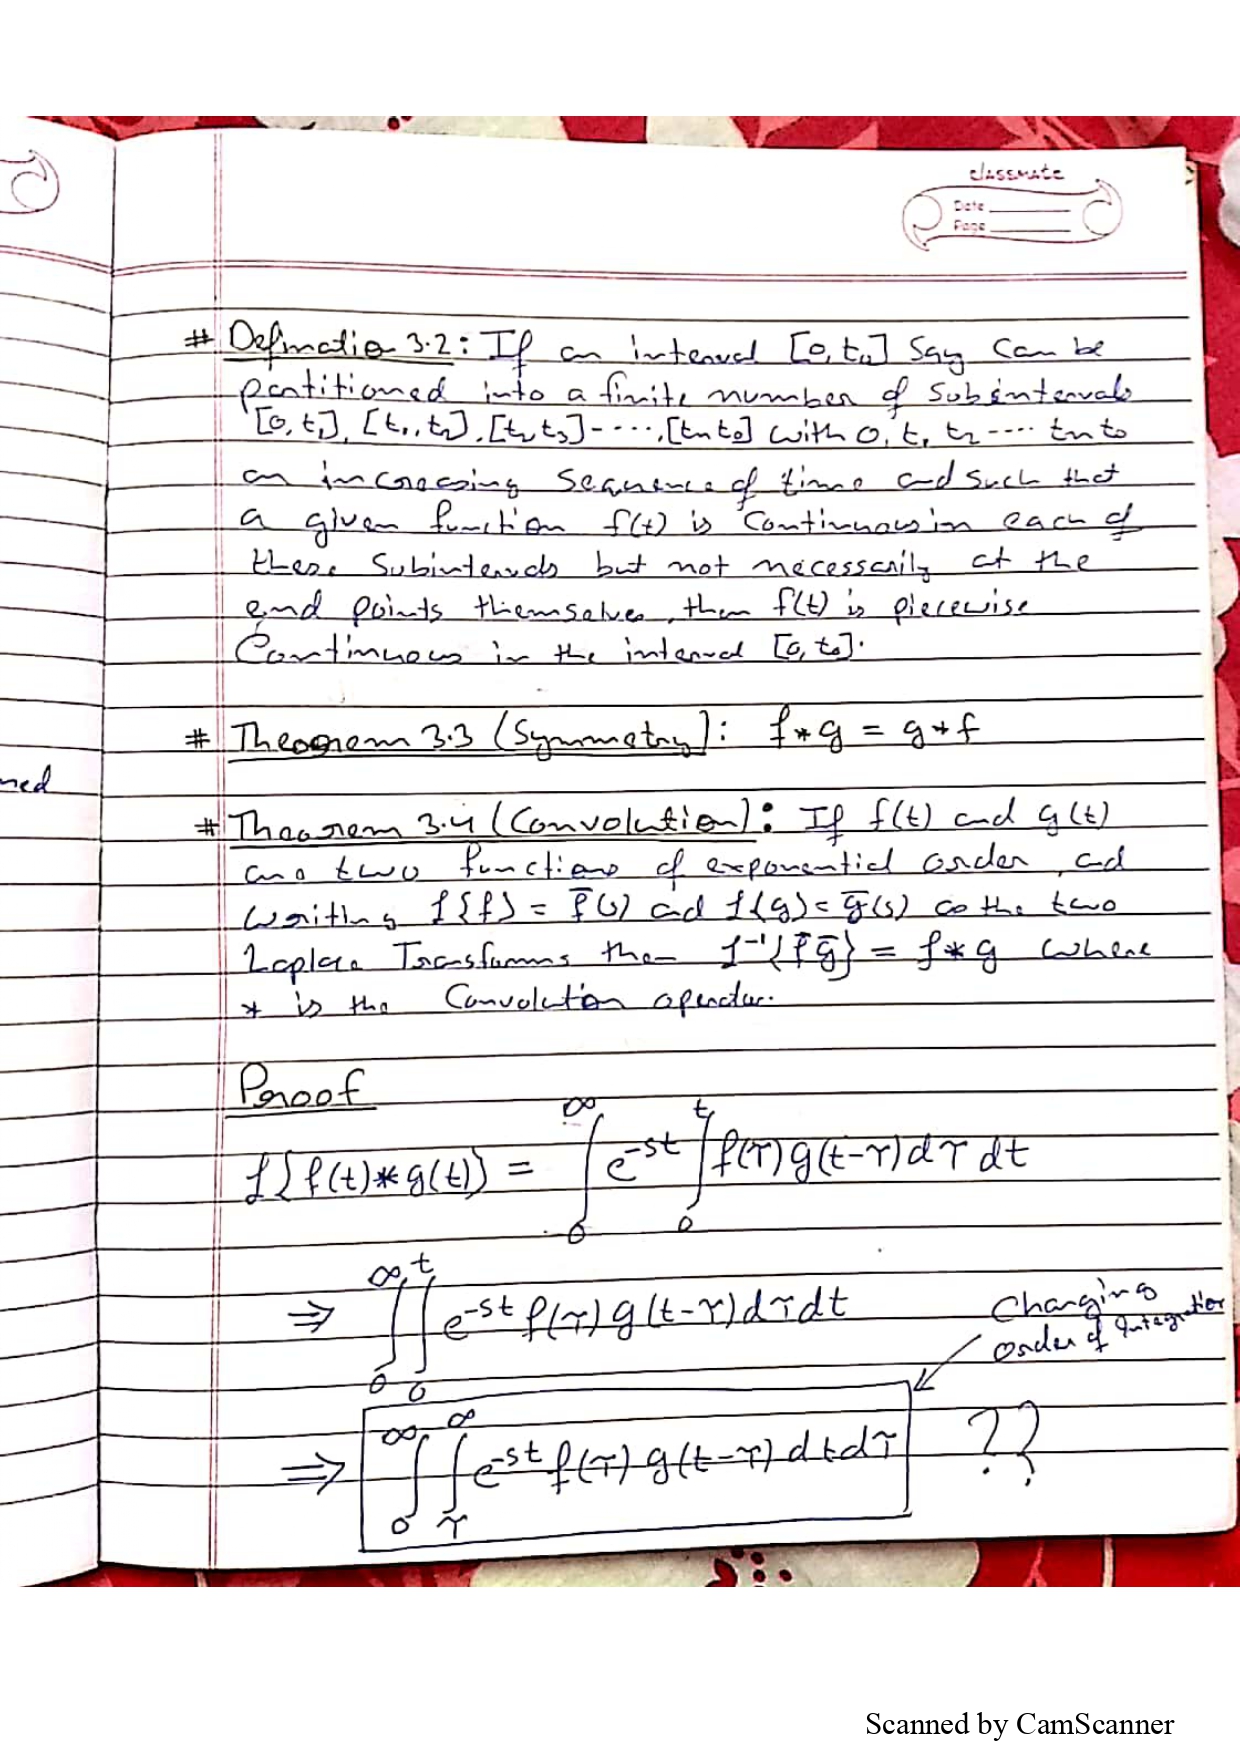 classmate
Date
Page
# Defination 3.2: If an interval [0, t₀] say can be
partitioned into a finite number of subintervals
[0, t₁], [t₁, t₂], [t₂ t₃] - ...., [tn t₀] with 0, t₁ t₂ ---- tn t₀
an increasing sequence of time and such that
a given function f(t) is continuous in each of
these subintervals but not necessarily at the
end points themselves, then f(t) is piecewise
Continuous in the interval [0, t₀].
# Theorem 3.3 (Symmetry): f*g = g*f
ned
# Theorem 3.4 (Convolution): If f(t) and g(t)
are two functions of exponential order, and
writing £{f} = f̅(s) and £{g} = g̅(s) as the two
Laplace Transforms then £⁻¹{f̅ g̅} = f*g where
* is the Convolution operator.
Proof
£{f(t)*g(t)} = ∫₀^∞ e^{-st} ∫₀^t f(τ) g(t-τ) dτ dt
⇒ ∫₀^∞ ∫₀^t e^{-st} f(τ) g(t-τ) dτ dt
Changing
order of Integration
⇒ ∫₀^∞ ∫_τ^∞ e^{-st} f(τ) g(t-τ) dt dτ ??
Scanned by CamScanner